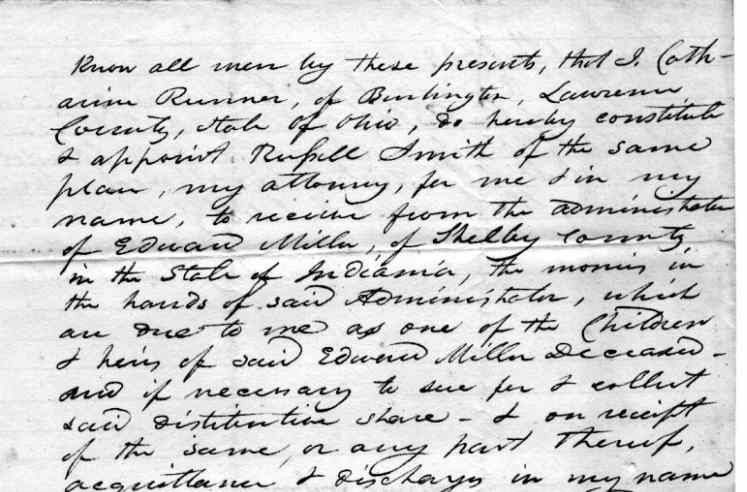 Know all men by these presents, that I. Cath-
arine Runner, of Burlington, Lawrence
County, State of Ohio, do hereby constitute
& appoint Russell Smith of the same
place, my attorney, for me & in my
name, to receive from the administrator
of Edward Miller, of Shelby County
in the State of Indiania, the monies in
the hands of said Administrator, which
are due to me as one of the Children
& heirs of said Edward Miller deceased -
and if necessary to sue for & collect
said distributive share - & on receipt
of the same, or any part thereof,
acquittance & discharges in my name